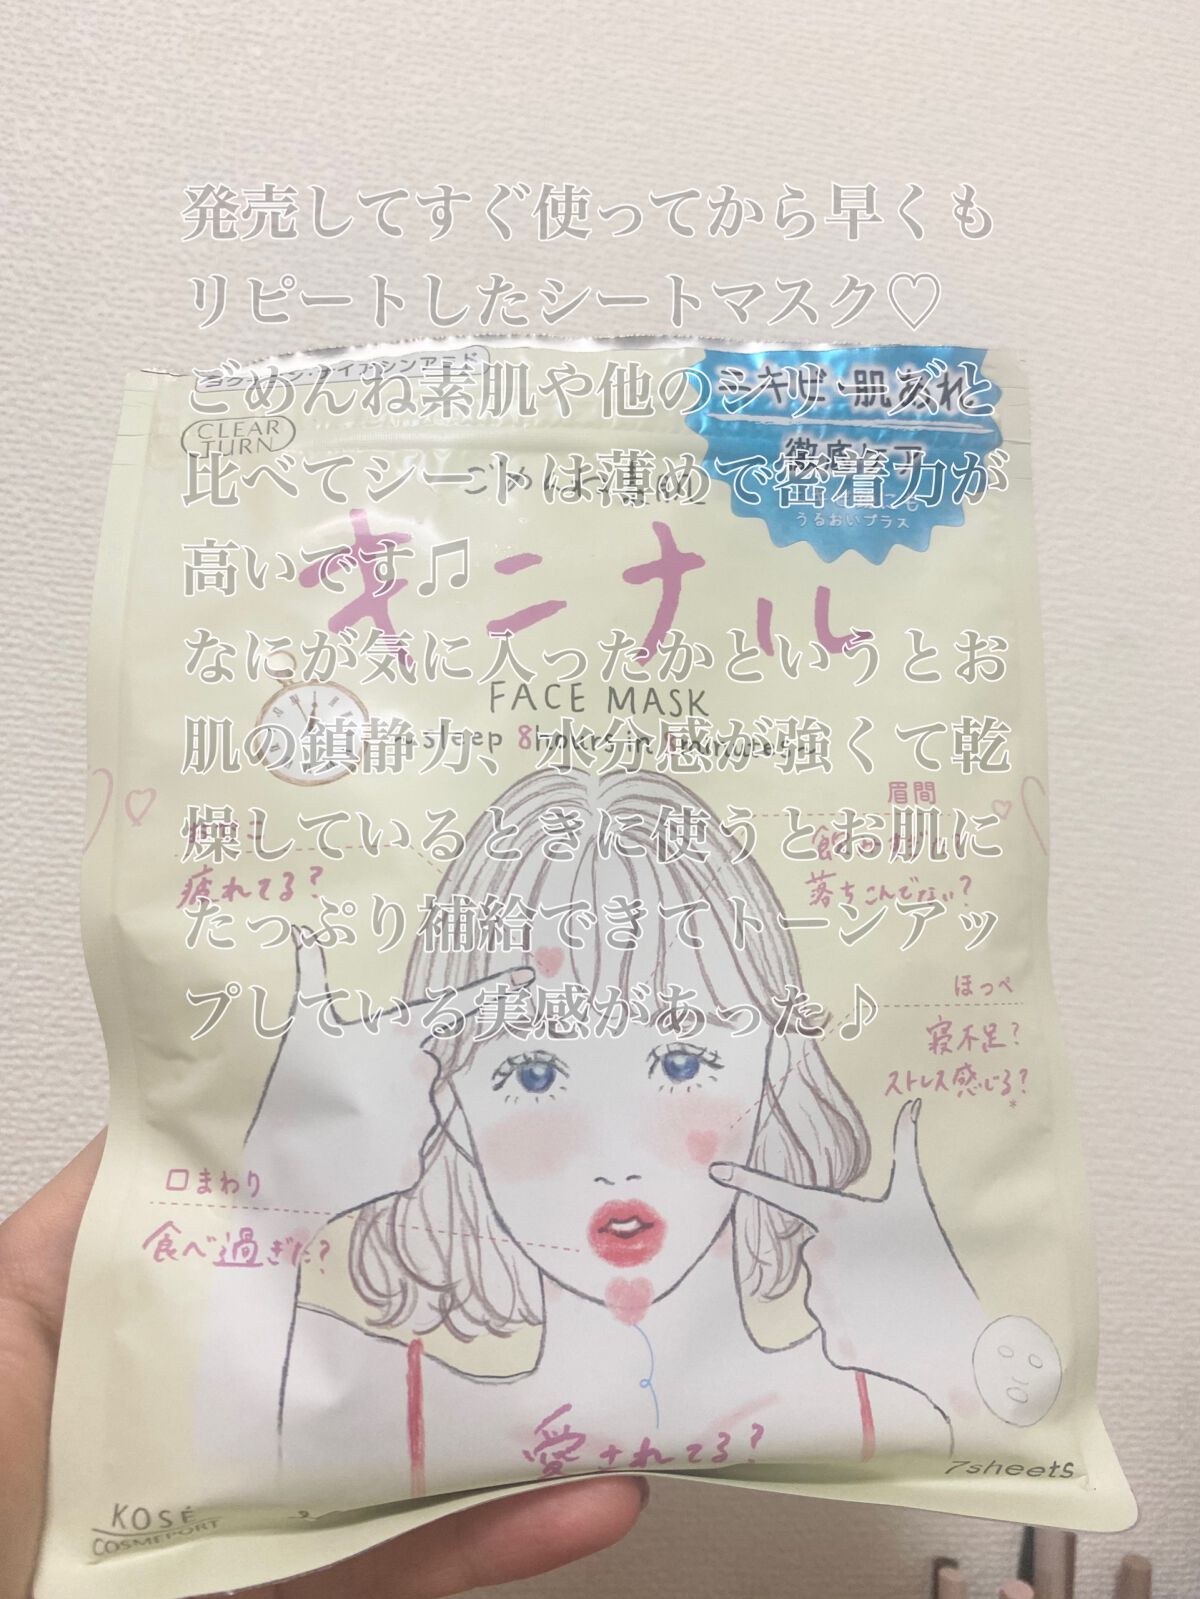 発売してすぐ使ってから早くも
リピートしたシートマスク♡
ごめんね素肌や他のシリーズと
比べてシートは薄めで密着力が
高いです♫
なにが気に入ったかというとお
肌の鎮静力、水分感が強くて乾
燥しているときに使うとお肌に
たっぷり補給できてトーンアッ
プしている実感があった♪
CLEAR
TURN
ニキビ・肌あれ
徹底ケア
うるおいプラス
ごめんね素肌
キニナル
FACE MASK
asleep 8hours in 8minutes
疲れてる?
眉間
落ちこんでない?
ほっぺ
寝不足?
ストレス感じる?*
口まわり
食べ過ぎた?
愛されてる?
7sheets
KOSÉ
COSMEPORT